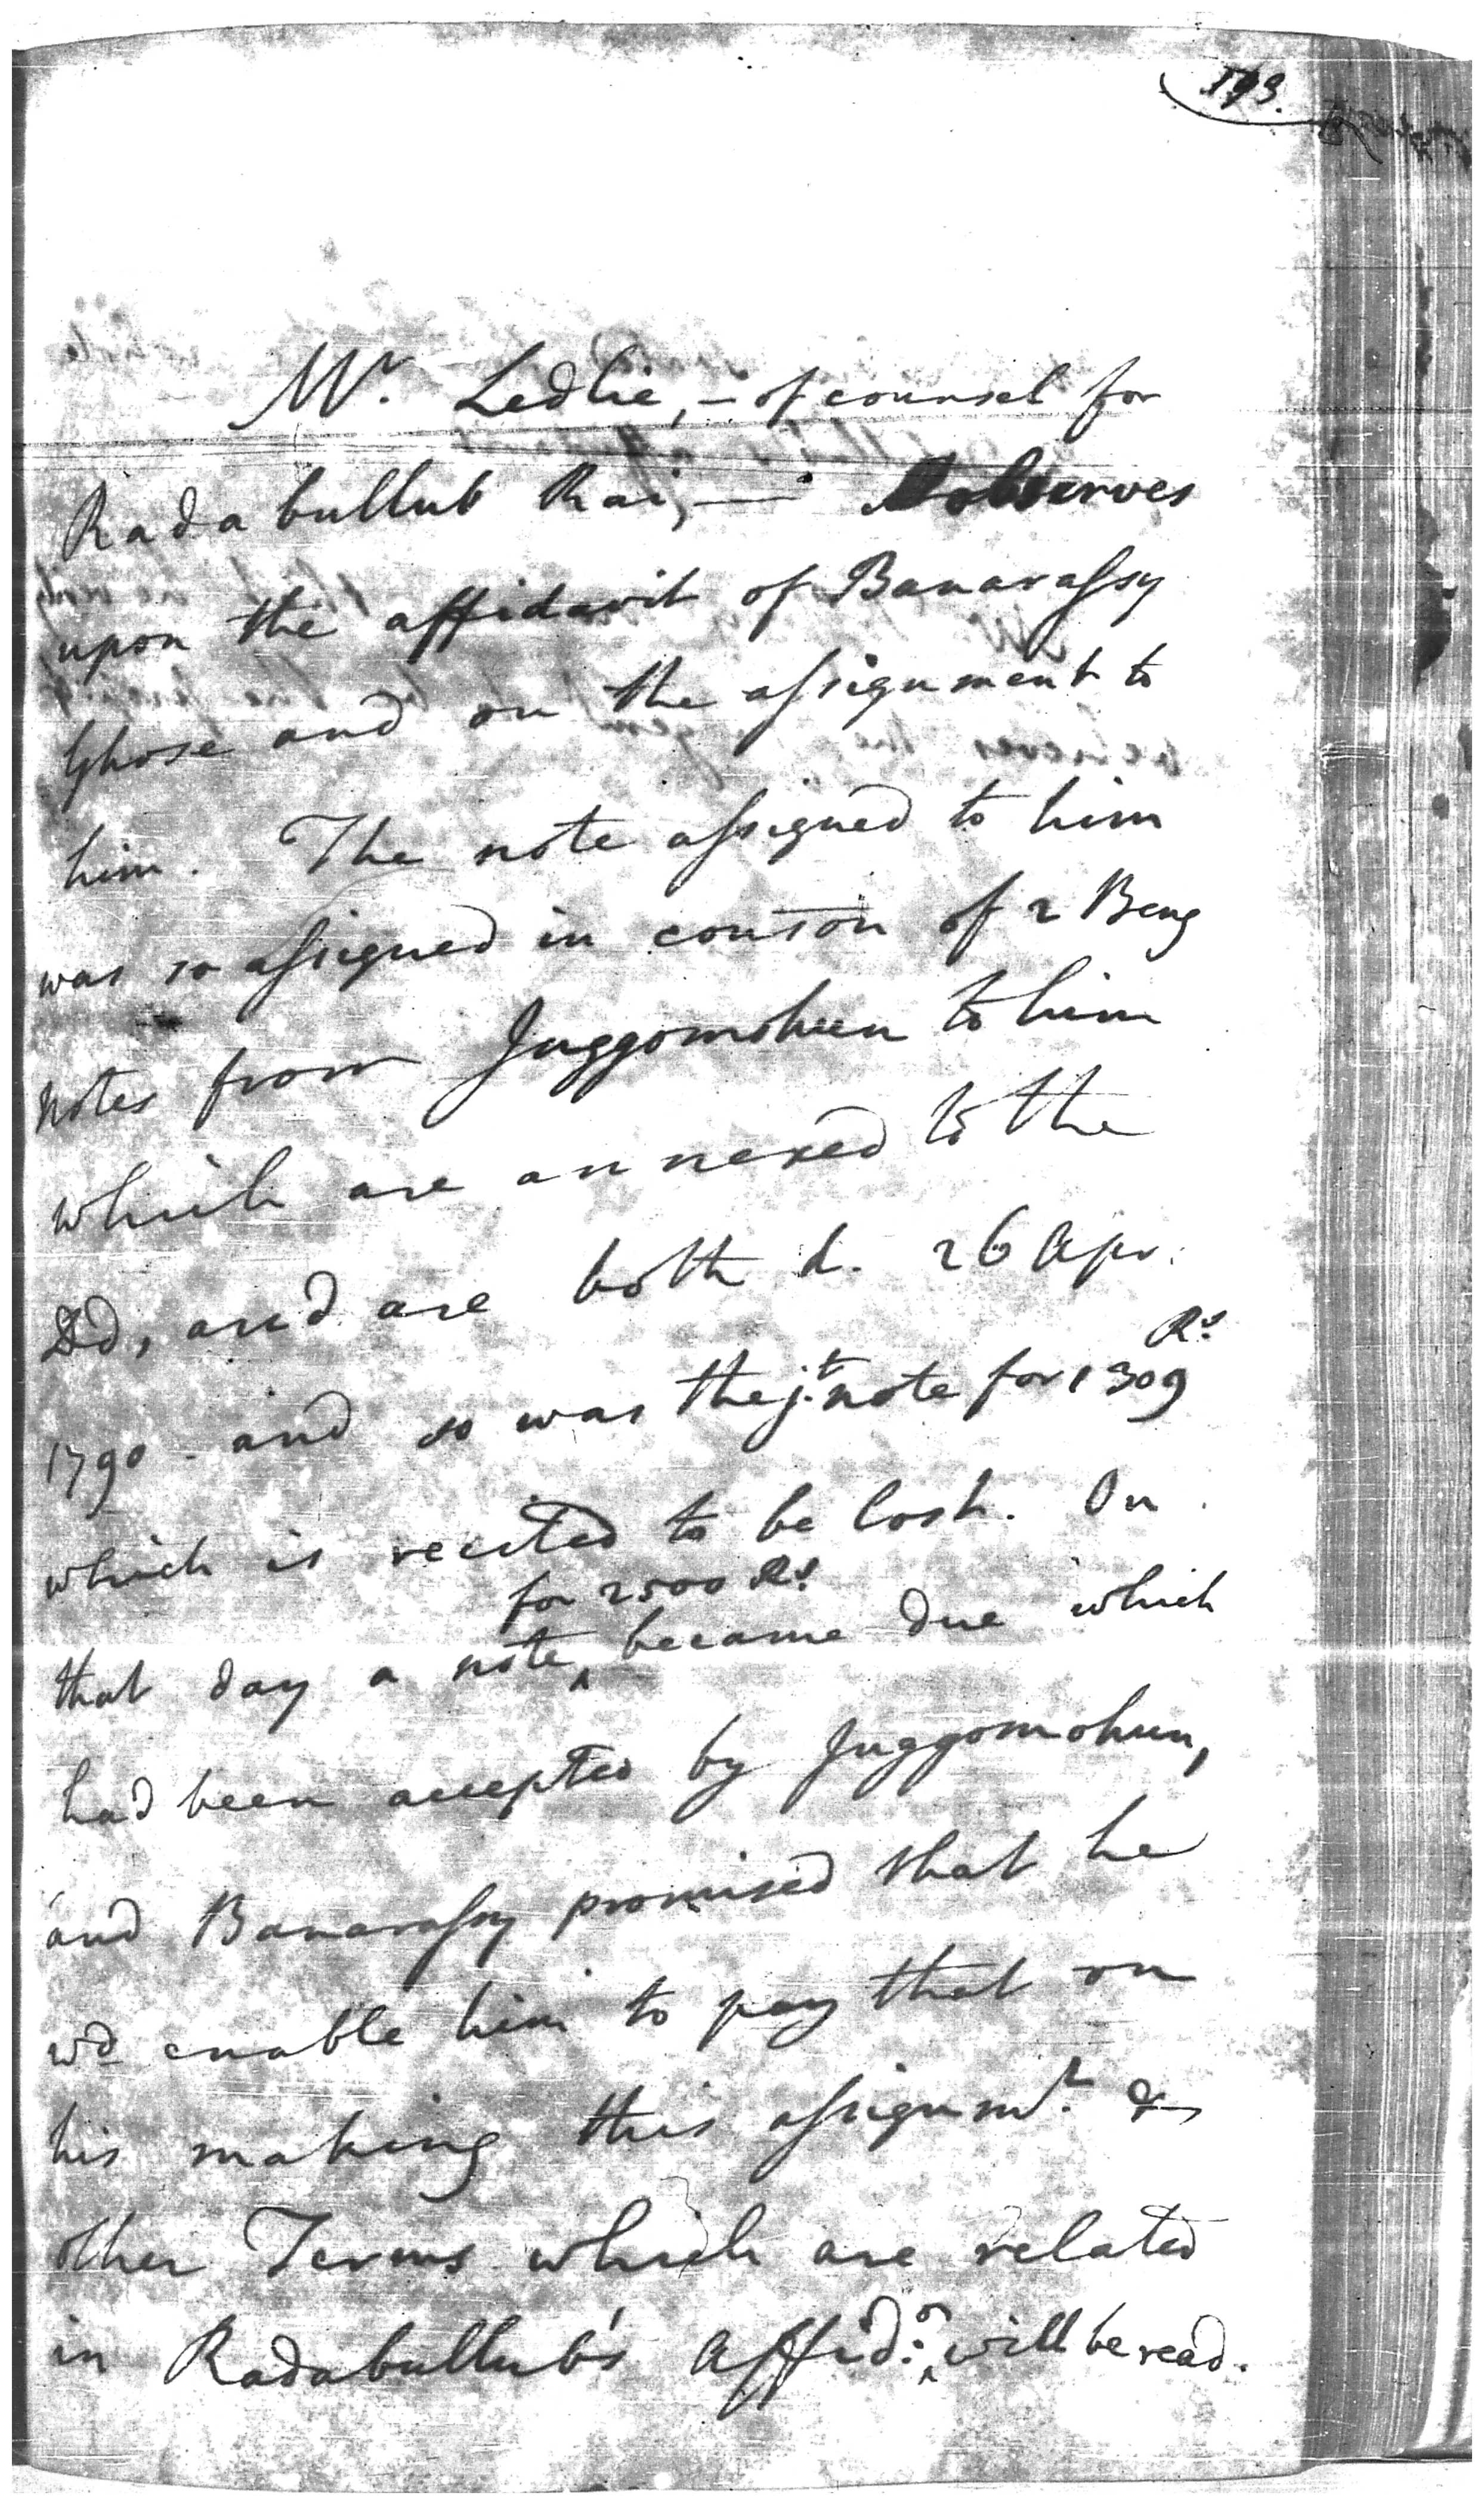 193.
Mr. Ledlie, – of counsel for
Radabullub Rai, — observes
upon the affidavit of Banarassy
Ghose and on the assignment to
him. The note assigned to him
was so assigned in conson of 2 Beng
notes from Juggomohun to him
which are annexed to the
Dd, and are both d. 26 Apr.
1790 - and so was the jt. note for 1309 Rs.
which is recited to be lost. On
that day a note ^ for 2500 Rs. became due which
had been accepted by Juggomohun,
and Banarassy promised that he
wd enable him to pay that on
his making this assignmt. &
other Terms which are related
in Radabullub's Affid: ^ will be read.